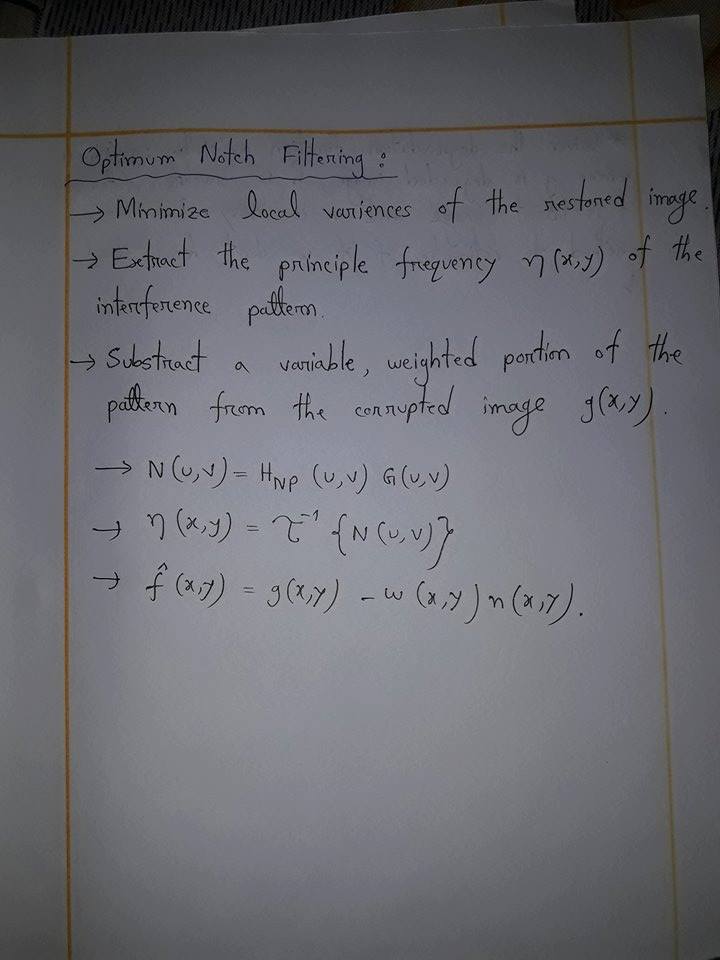 Optimum Notch Filtering :
→ Minimize local variences of the restored image.
→ Extract the principle frequency η(x,y) of the
interference pattern.
→ Substract a variable, weighted portion of the
pattern from the corrupted image g(x,y).
→ N(u,v) = H_NP (u,v) G(u,v)
→ η(x,y) = τ⁻¹ {N(u,v)}
→ f̂(x,y) = g(x,y) - w(x,y) n(x,y).